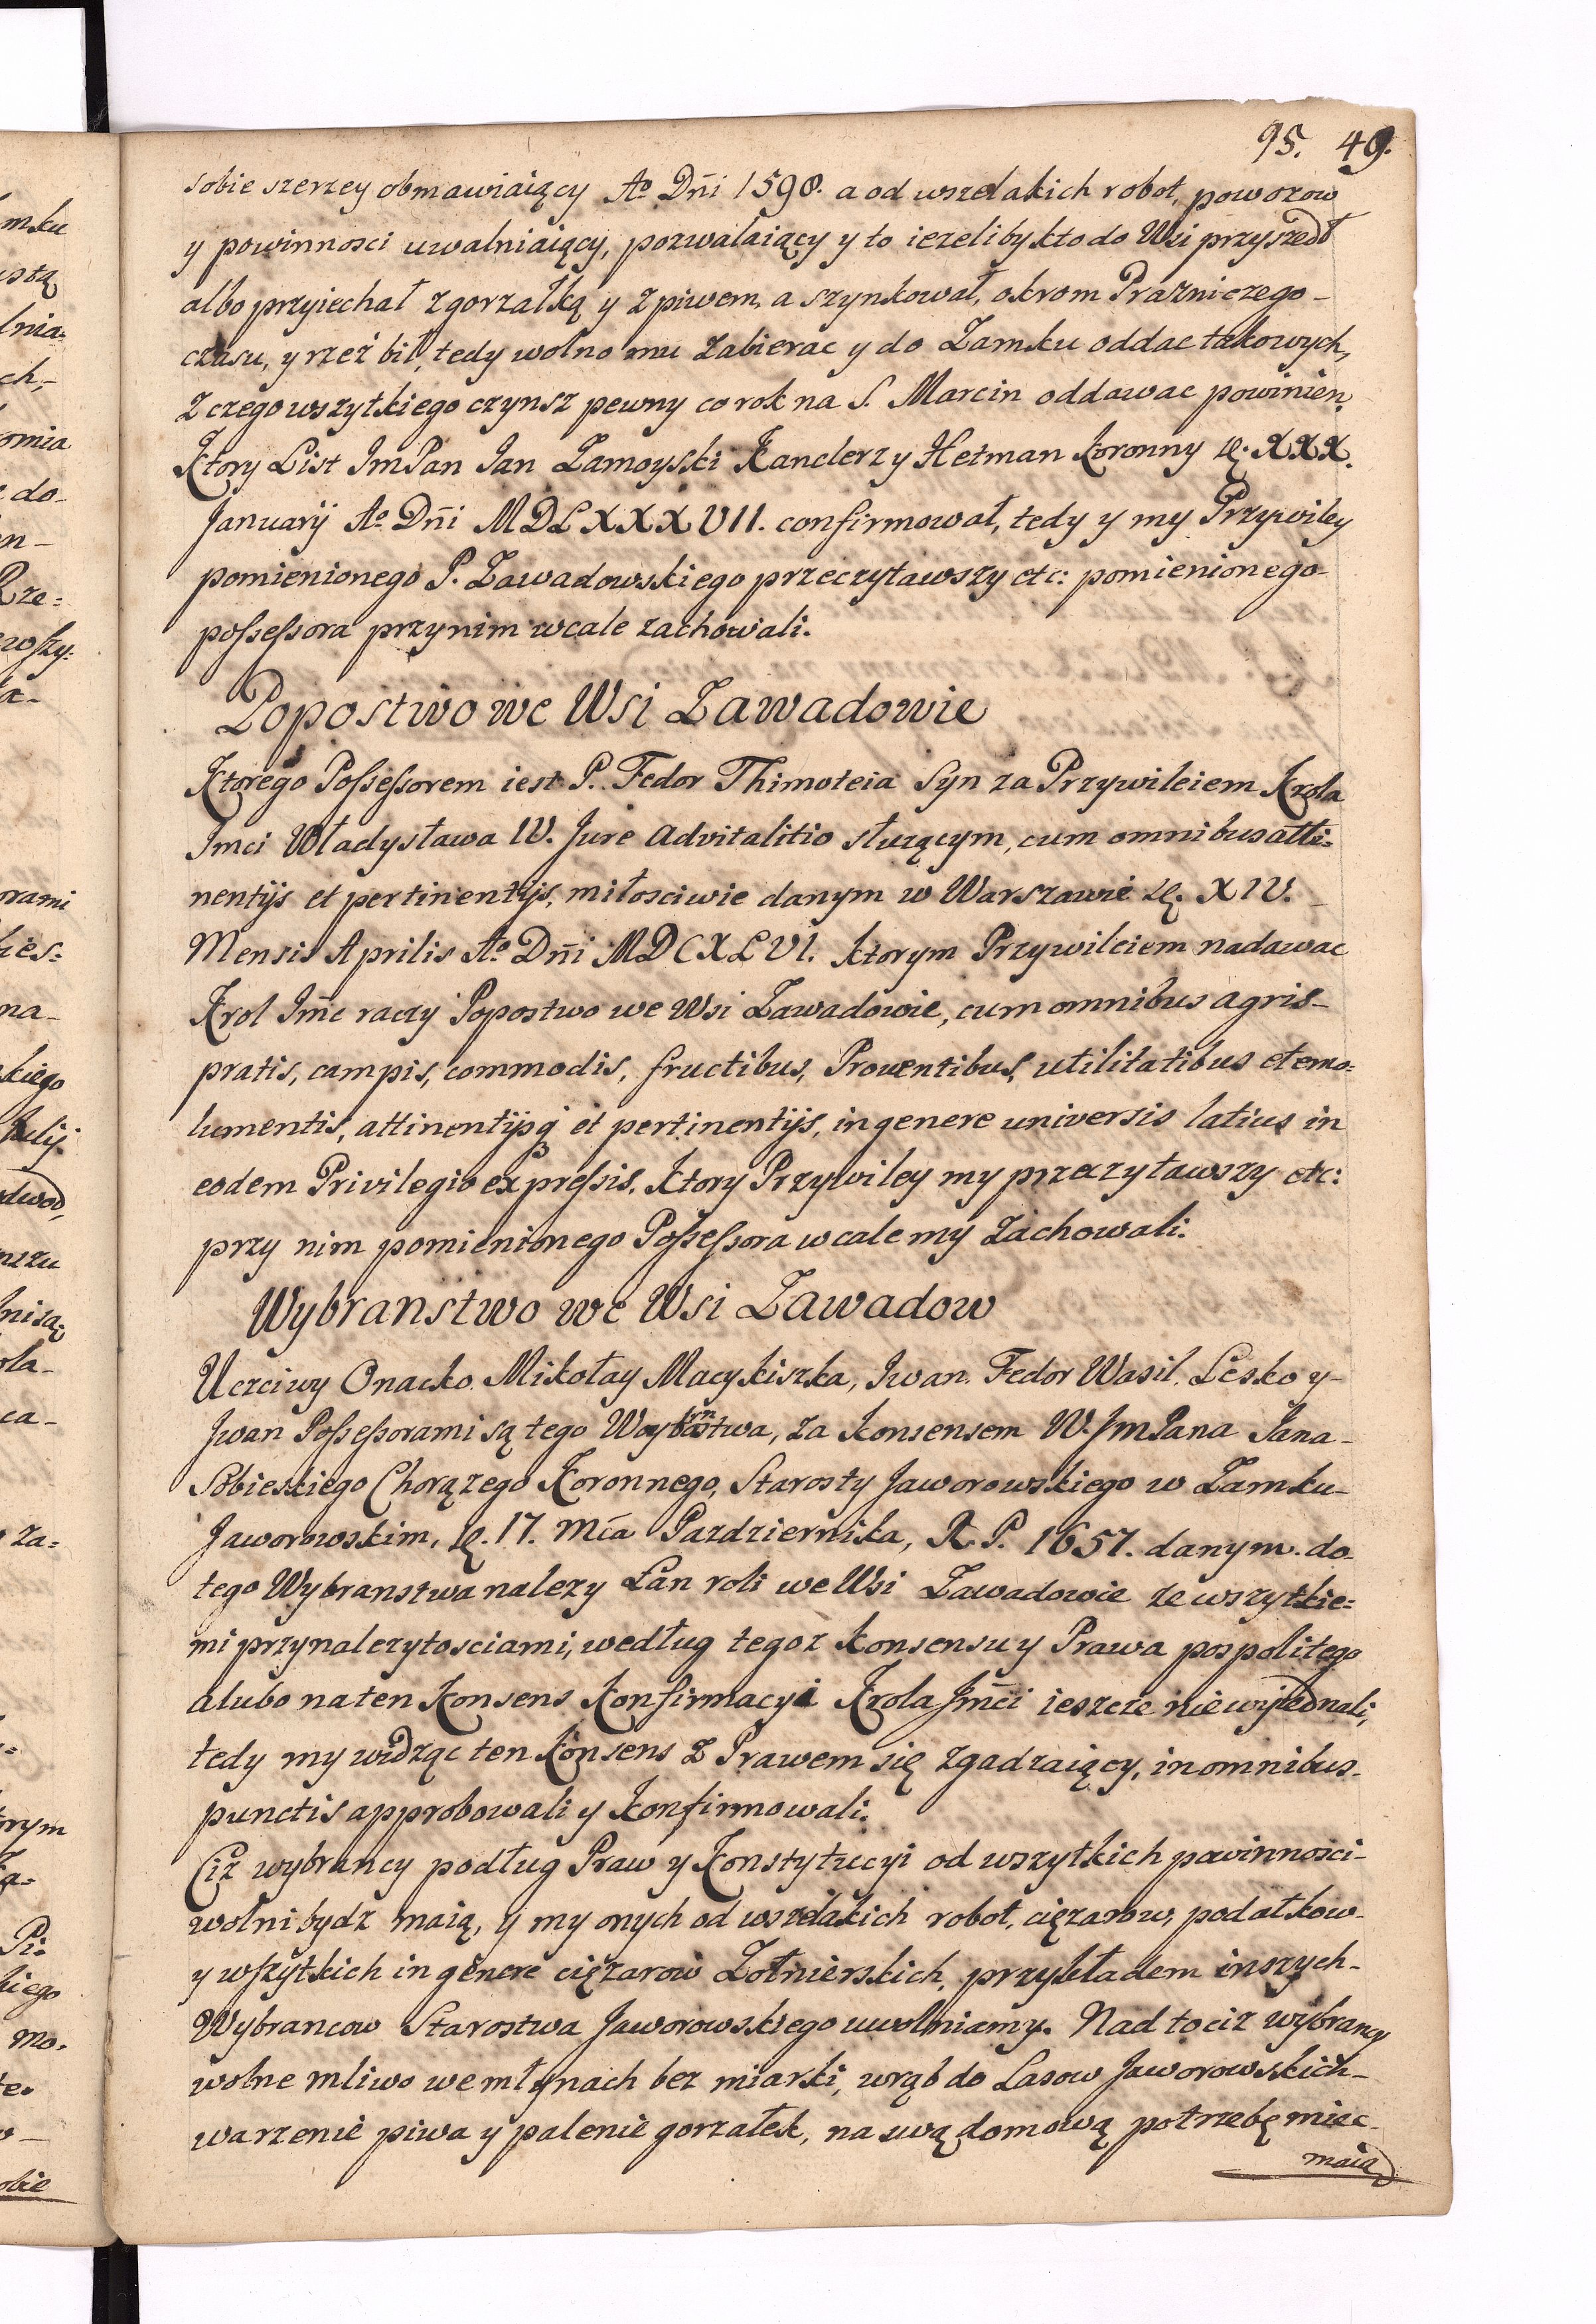 95. 49.
sobie szerzey obmawiaiący Aº Dn̄i 1598. a od wszelakich robot, powozow
y powinnosci uwalniaiący, pozwalaiący y to iezeliby kto do Wsi przyszedł
albo przyiechał z gorzałką y z piwem, a szynkował, okrom Prazniczego-
czasu, y rzeź bił, tedy wolno mu zabierac y do Zamku oddac takowych,
z czego wszytkiego czynsz pewny co rok na S. Marcin oddawac powinien.
Ktory List ImPan Jan Zamoyski Kanclerz y Hetman Koronny d. XXX.
Januarij Aº Dn̄i MDLXXXVII. confirmował, tedy y my Przywiley
pomienionego P. Zawadowskiego przeczytawszy etc: pomienionego-
possessora przy nim wcale zachowali.
Popostwo we Wsi Zawadowie
Ktorego Possessorem iest P. Fedor Thimoteia Syn za Przywileiem Krola
Jmci Władysława IV. Jure Advitalitio słuzącym, cum omnibus atti=
nentijs et pertinentijs, miłosciwie danym w Warszawie d. XIV.-
Mensis Aprilis Aº Dn̄i MDCXLVI. ktorym Przywileiem nadawac
Krol Jm̄c raczy Popostwo we Wsi Zawadowie, cum omnibus agris-
pratis, campis, commodis, fructibus, Proventibus, utilitatibus et emo=
lumentis, attinentijsq et pertinentijs, in genere universis latius in
eodem Privilegio expressis. Ktory Przywiley my przeczytawszy etc:
przy nim pomienionego Possessora wcale my zachowali.
Wybranstwo we Wsi Zawadow
Uczciwy Onacko. Mikołay Macykiszka, Iwan. Fedor Wasil. Lesko y-
Jwan Possessorami są tego Woybranstwa, za Konsensem W. JmPana Jana-
Sobieskiego Chorązego Koronnego, Starosty Jaworowskiego w Zamku-
Jaworowskim, d. 17. Mc̄a Pazdziernika, R. P. 1657. danym. do-
tego Wybranstwa nalezy Łan roli we Wsi Zawadowie ze wszytkie=
mi przynalezytosciami, według tegoz Konsensu y Prawa pospolitego
a lubo na ten Konsens Konfirmacyi Krola Jm̄ci ieszcze nie wyiednali,
tedy my widząc ten Konsens z Prawem się zgadzaiący, in omnibus-
punctis approbowali y Konfirmowali.
Ciz wybrancy podług Praw y Konstytucyi od wszytkich powinnosci-
wolni bydz maią, y my onych od wszelakich robot, cięzarow, podatkow-
y wszytkich in genere cięzarow Zołnierskich, przykładem inszych-
Wybrancow Starostwa Jaworowskiego uwolniamy. Nad to ciz wybrancy
wolne mliwo we młynach bez miarki, wrąb do Lasow Jaworowskich-
warzenie piwa y palenie gorzałek, na swą domową potrzebę miec-
maią